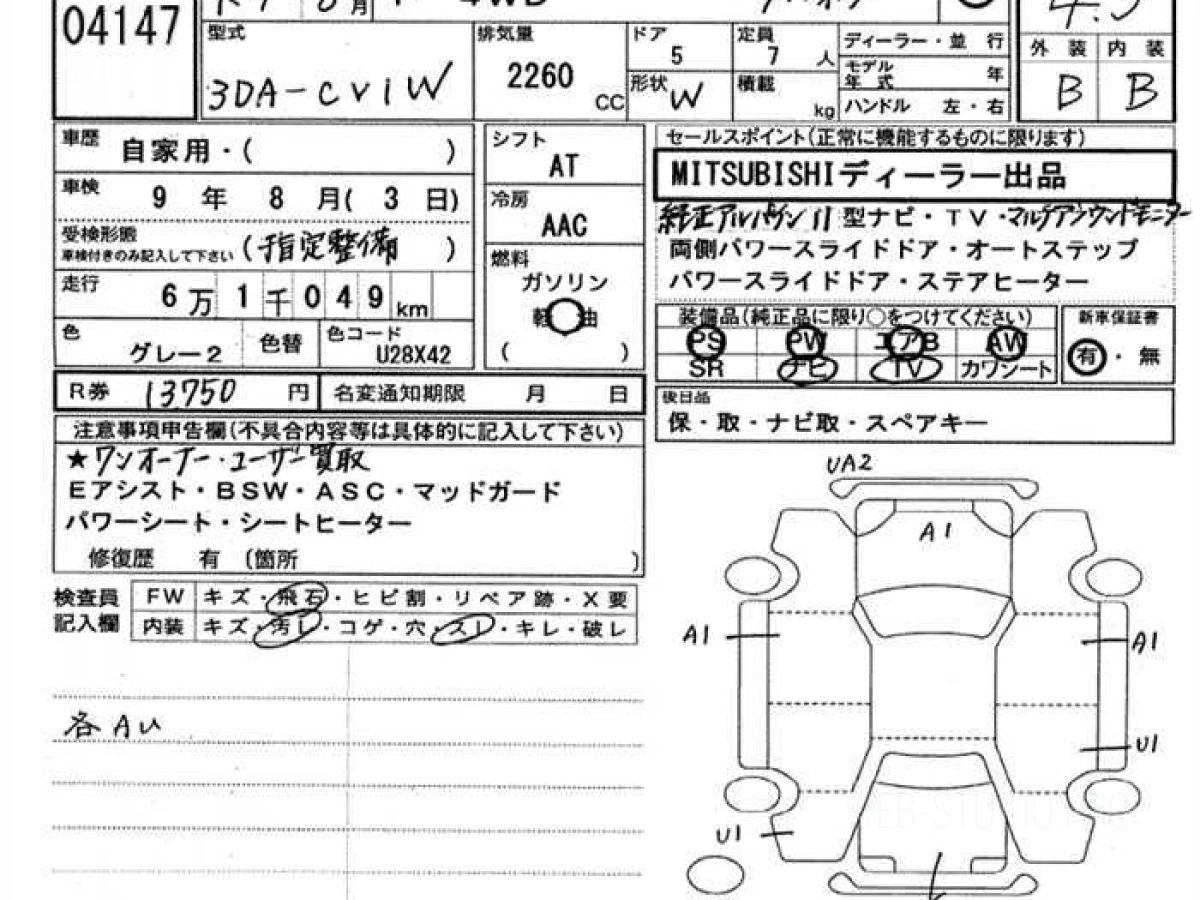 04147
型式
3DA-CV1W
排気量
2260
CC
ドア
5
形状
W
定員
7 人
積載
kg
ディーラー・並 行
モデル年式 年
ハンドル 左・右
4.5
外 装 内 装
B B
車歴 自家用・( )
車検 9 年 8 月( 3 日)
受検形態
車検付きのみ記入して下さい (指定整備 )
走行 6万1千049km
色 グレー2 色替 色コード U28X42
シフト
AT
冷房
AAC
燃料
ガソリン
軽 油
( )
セールスポイント(正常に機能するものに限ります)
MITSUBISHIディーラー出品
純正アルパイン11型ナビ・TV・マルチアラウンドモニター
両側パワースライドドア・オートステップ
パワースライドドア・ステアヒーター
装備品(純正品に限り○をつけてください)
PS PW エアB AW
SR ナビ TV カワシート
新車保証書
有・無
R券 13750 円 名変通知期限 月 日
後日品
保・取・ナビ取・スペアキー
注意事項申告欄(不具合内容等は具体的に記入して下さい)
★ワンオーナー・ユーザー買取
Eアシスト・BSW・ASC・マッドガード
パワーシート・シートヒーター
修復歴 有 (箇所 )
検査員記入欄
FW キズ・飛石・ヒビ割・リペア跡・X要
内装 キズ・汚レ・コゲ・穴・スレ・キレ・破レ
各AU
UA2
A1
A1
A1
U1
U1